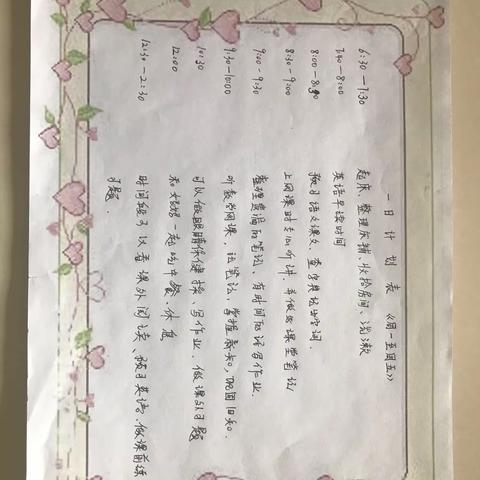 一日计划表 《周一至周五》
6:30—7:30 起床、整理床铺、收拾房间、洗漱
7:40—8:00 英语早读时间
8:00—8:30 预习语文课文、查字典记生字词.
8:30—9:00 上网课时专心听讲.并做好课堂笔记
9:00—9:30 整理资源和笔记、有时间的话写作业.
9:30—10:00 听数学网课、记笔记、掌握新知,巩固旧知.
10:30 可以做眼睛保健操、写作业、做课外习题
12:00 和妈妈一起吃中餐、休息
12:30—2:30 时间段可以看课外阅读、预习英语、做课前练
习题.